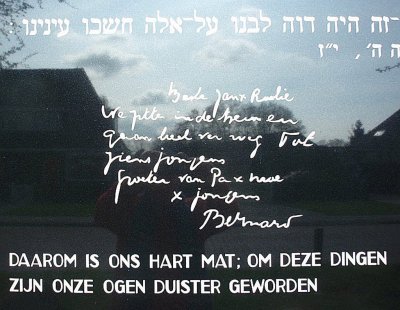 ־זה היה דוה לבנו על־אלה חשכו עינינו:
ה ה', י״ז
Beste Jan x Rudie
We zitten in de trein en
gaan heel ver weg Tot
ziens jongens
Groeten van Pa x
x jongens
Bernard
DAAROM IS ONS HART MAT; OM DEZE DINGEN
ZIJN ONZE OGEN DUISTER GEWORDEN